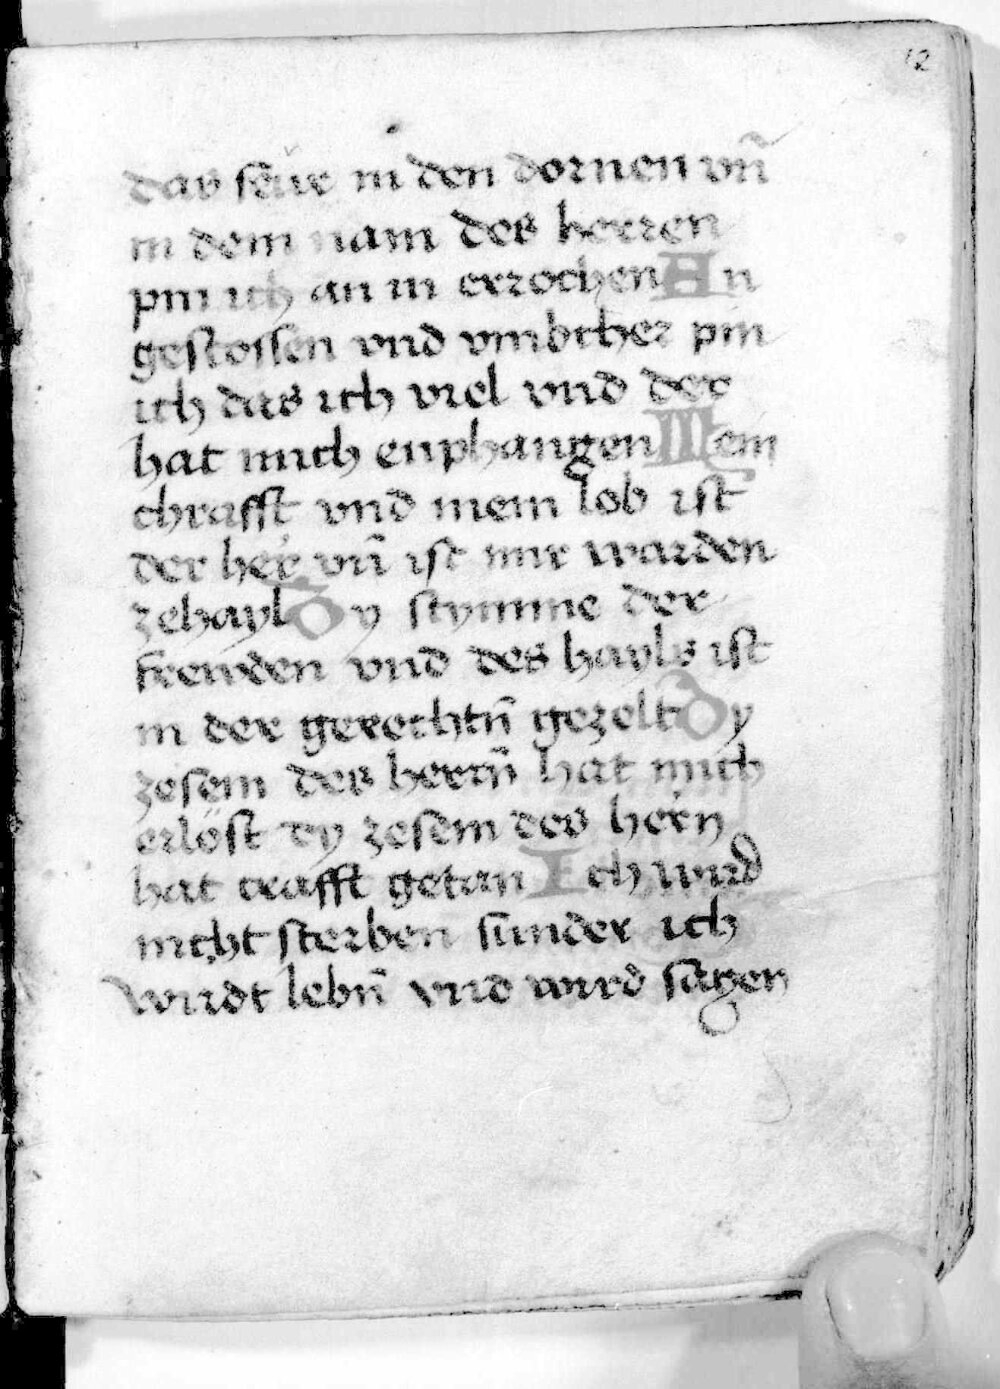 12
das feür in den dornen vn̄
in dem nam des herren
pin ich an in errochen An
gestossen vnd vmbcher pin
ich das ich viel vnd der
hat mich enphangen Mein
chrafft vnd mein lob ist
der her vn̄ ist mir warden
zehayl Dy stymme der
frewden vnd des hayls ist
in der gerechtn̄ gezelt Dy
zesem des herrn̄ hat mich
erlöst dy zesem des hern
hat crafft getan Ich wird
nicht sterben sunder ich
wirdt lebn̄ vnd wird sagen